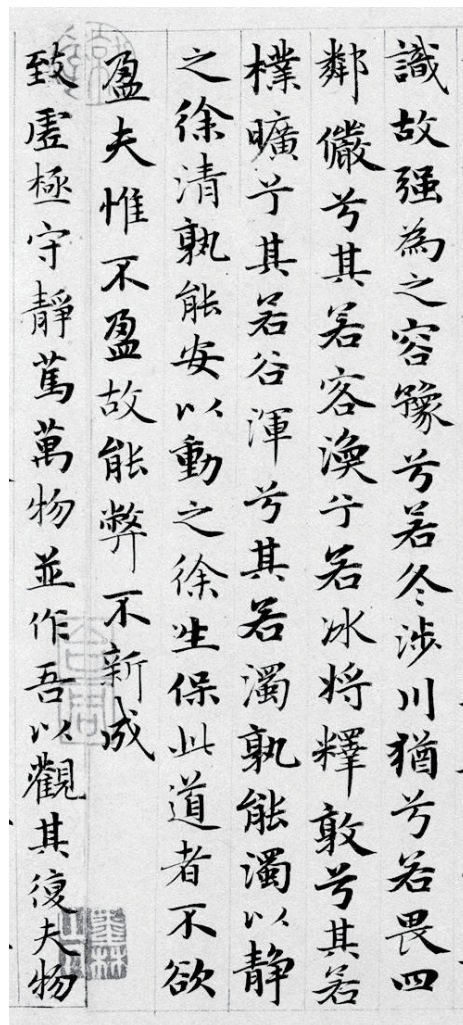 識故强為之容豫兮若冬涉川猶兮若畏四
鄰儼兮其若容渙兮若冰将釋敦兮其若
樸曠兮其若谷渾兮其若濁孰能濁以静
之徐清孰能安以動之徐生保此道者不欲
盈夫惟不盈故能弊不新成
致虛極守静萬萬物並作吾以觀其復夫物